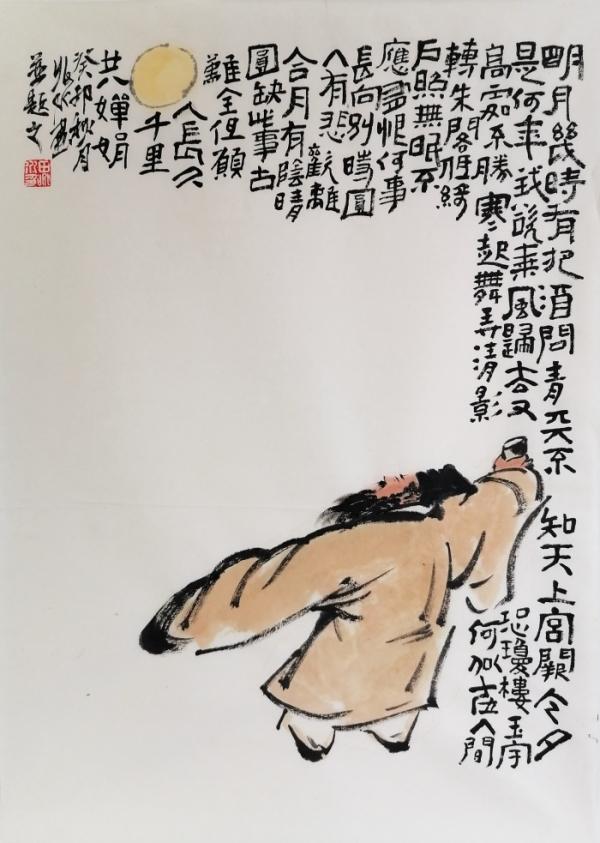 明月幾時有把酒問青天不知天上宮闕今夕
是何年我欲乘風歸去又恐瓊樓玉宇
高處不勝寒起舞弄清影何似在人間
轉朱閣低綺
戶照無眠不
應有恨何事
長向別時圓
人有悲歡離
合月有陰晴
圓缺此事古
難全但願
人長久
千里
共嬋娟
癸卯秋月
並題之